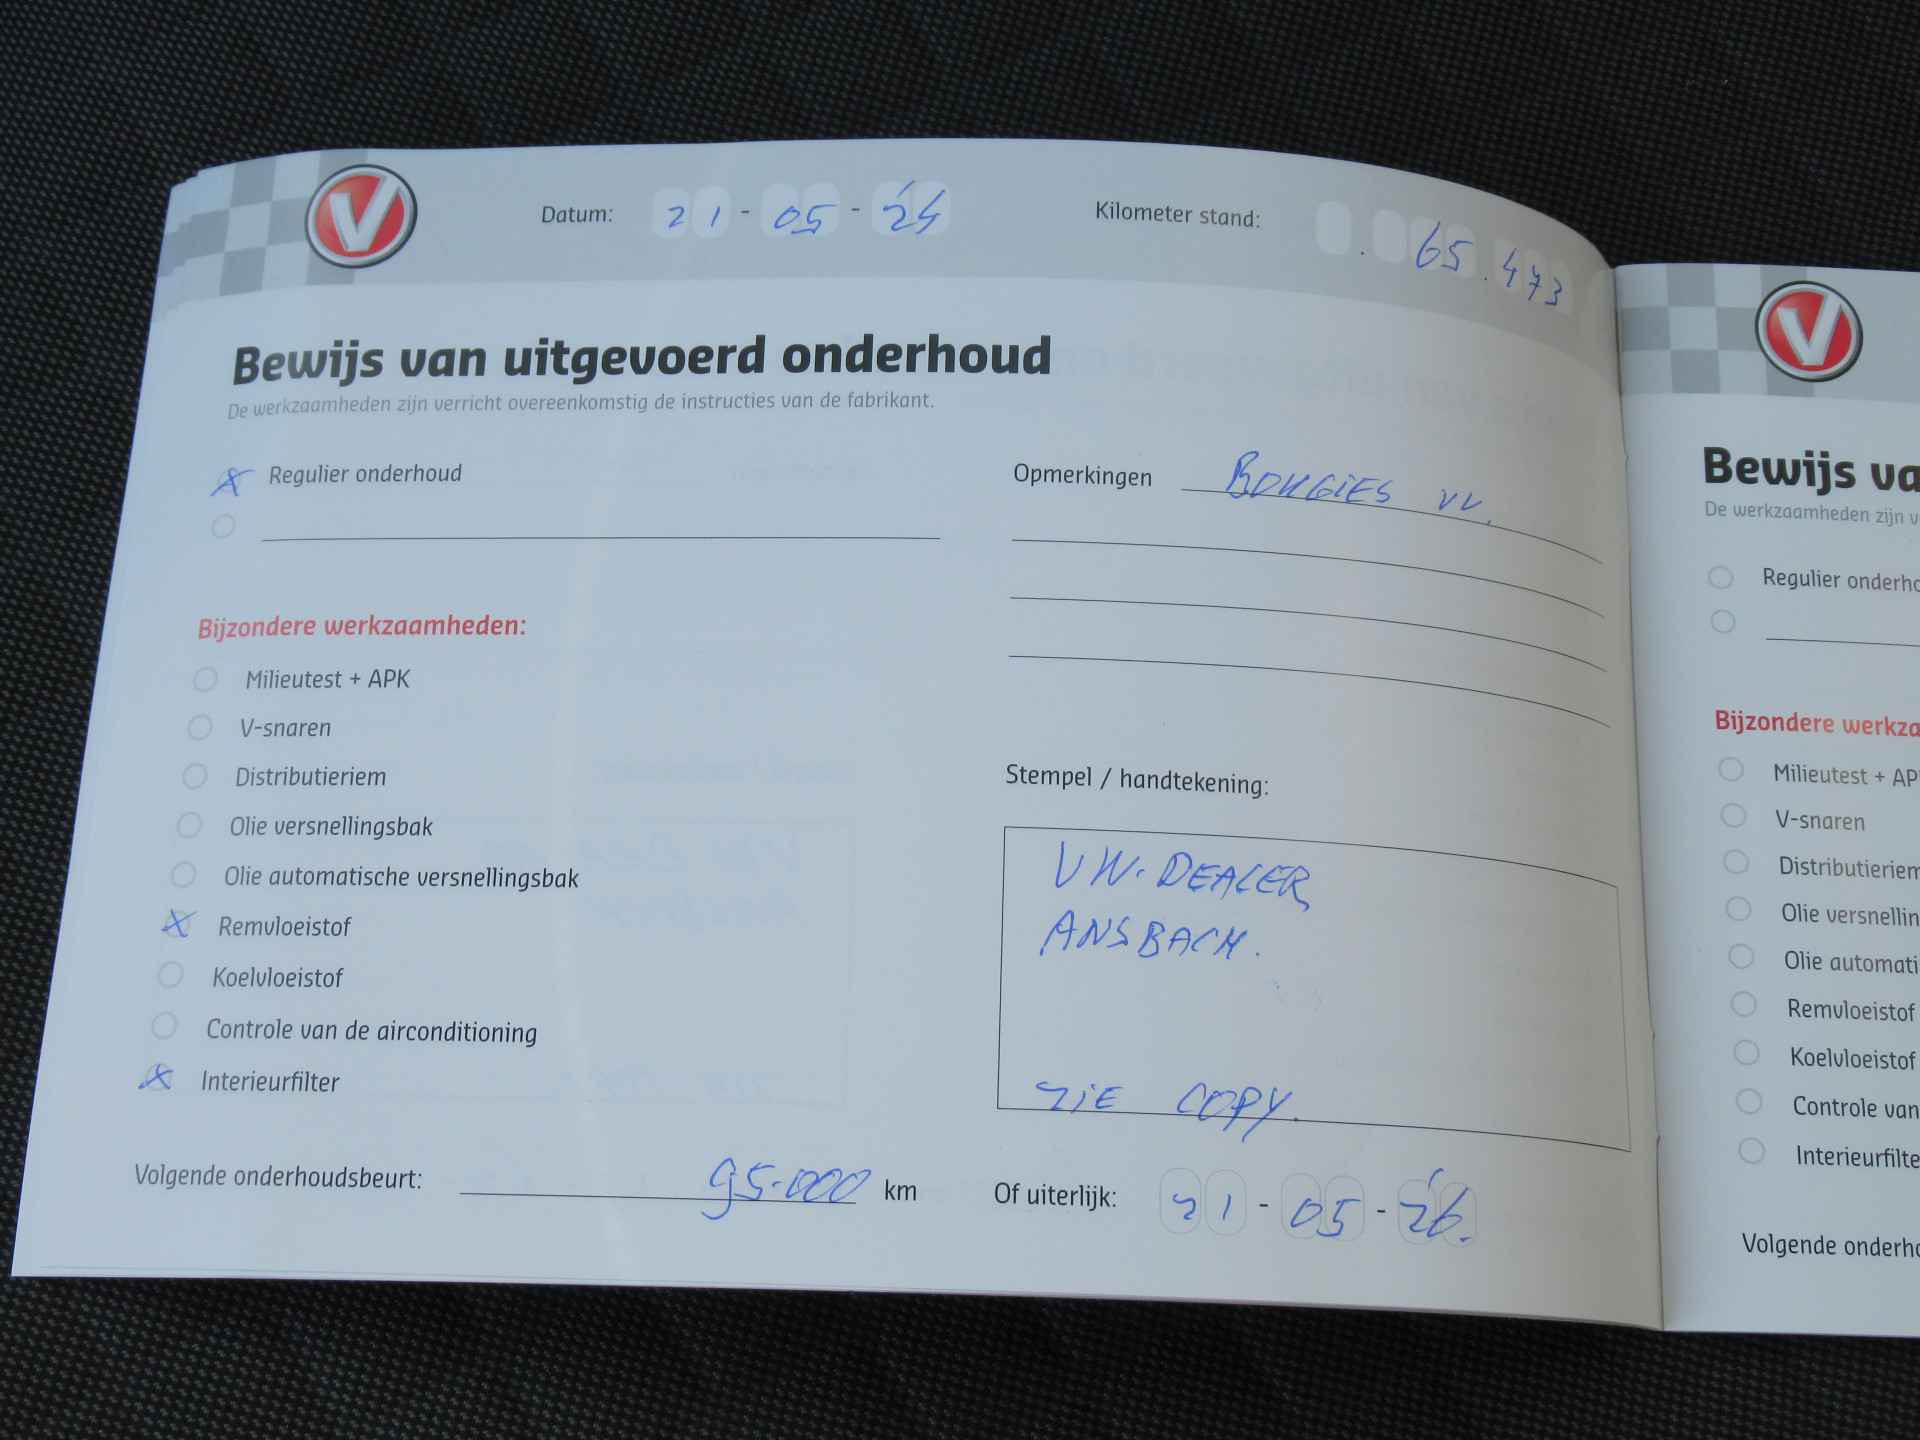 V
Datum: 21 - 05 - '24
Kilometer stand: . 65.473
Bewijs van uitgevoerd onderhoud
De werkzaamheden zijn verricht overeenkomstig de instructies van de fabrikant.
X Regulier onderhoud
Opmerkingen BOUGIES VV.
Bijzondere werkzaamheden:
Milieutest + APK
V-snaren
Distributieriem
Olie versnellingsbak
Olie automatische versnellingsbak
X Remvloeistof
Koelvloeistof
Controle van de airconditioning
X Interieurfilter
Stempel / handtekening:
VW. DEALER
ANSBACH.
ZIE COPY.
Volgende onderhoudsbeurt: 95.000 km
Of uiterlijk: 21 - 05 - '26.
V
Bewijs va
De werkzaamheden zijn v
Regulier onderho
Bijzondere werkza
Milieutest + AP
V-snaren
Distributieriem
Olie versnellin
Olie automati
Remvloeistof
Koelvloeistof
Controle van
Interieurfilte
Volgende onderho